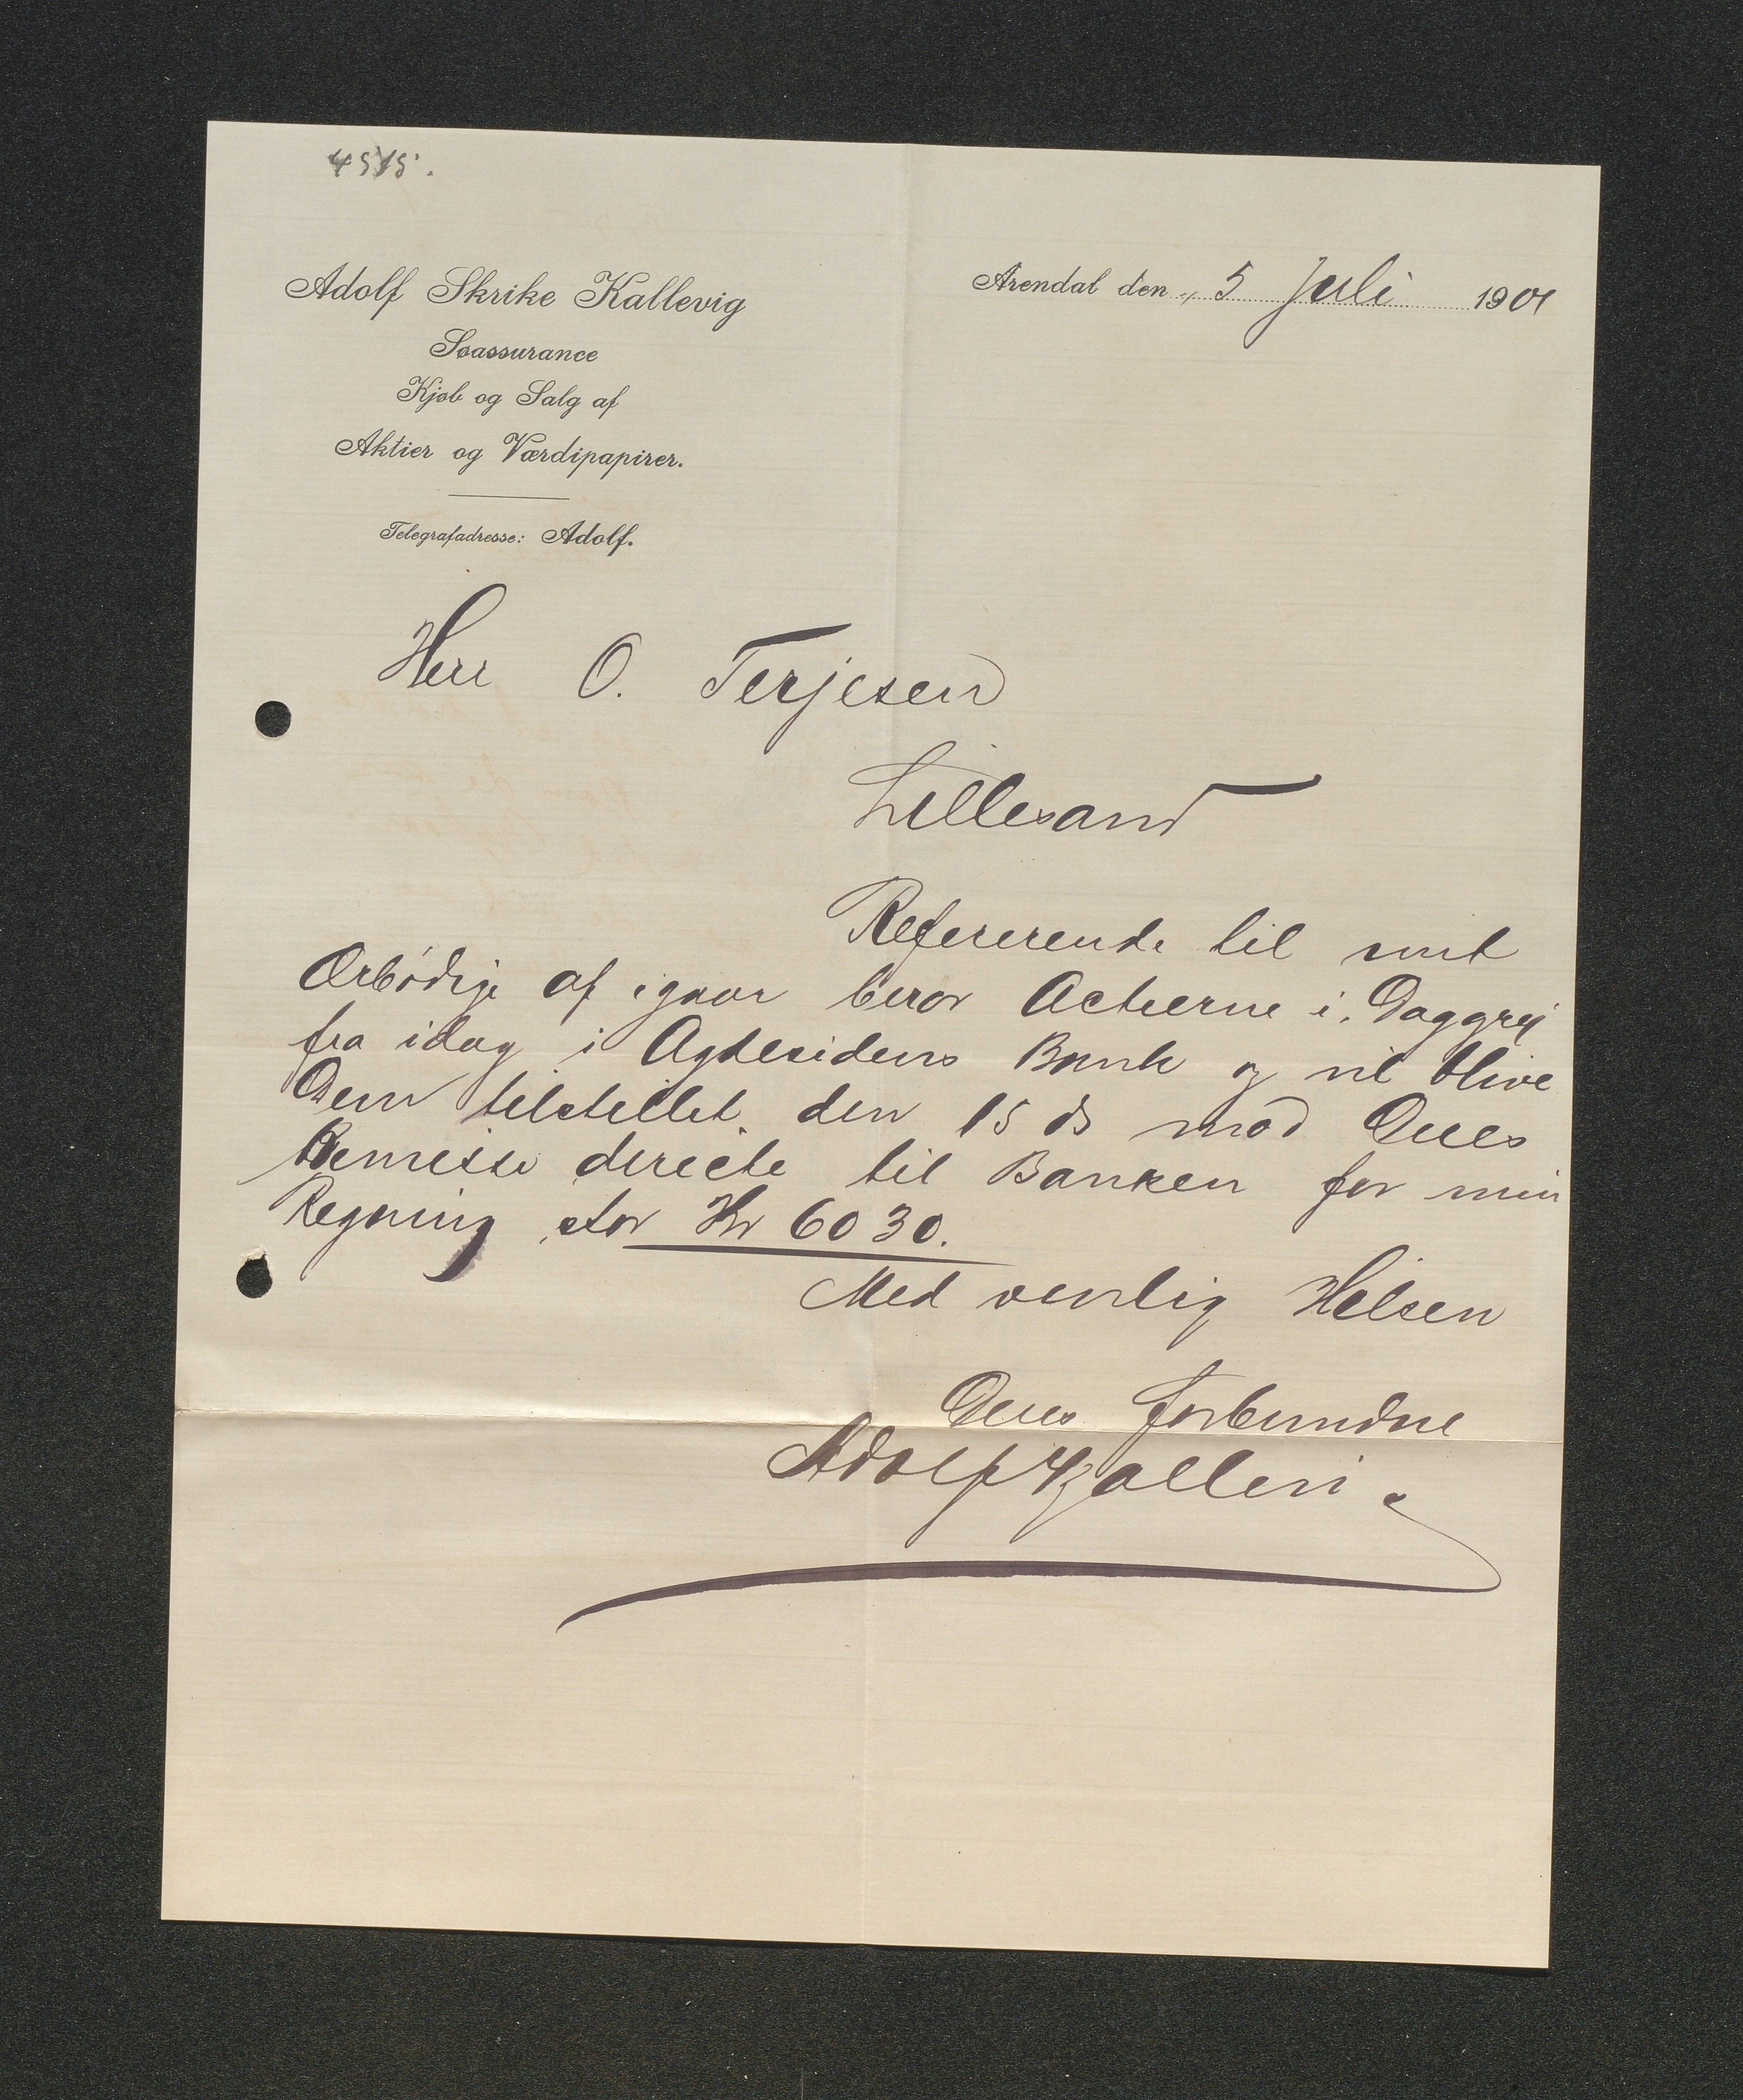 4515.
Adolf Skrike Kallevig
Søassurance
Kjøb og Salg af
Aktier og Værdipapirer.
Telegrafadresse: Adolf.
Arendal den 5 Juli 1901
Herr O. Terjesen
Lillesand
Refererende til mit
Ærbödige af igaar beror Actierne i. Daggry
fra idag i Agdesidens Bank og vil blive
Dem tilstillet. den 15 ds mod Deres
Remisse directe til Banken for min
Regning stor Kr 6030.
Med venlig Helsen
Deres forbundne
Adolf Kallevi